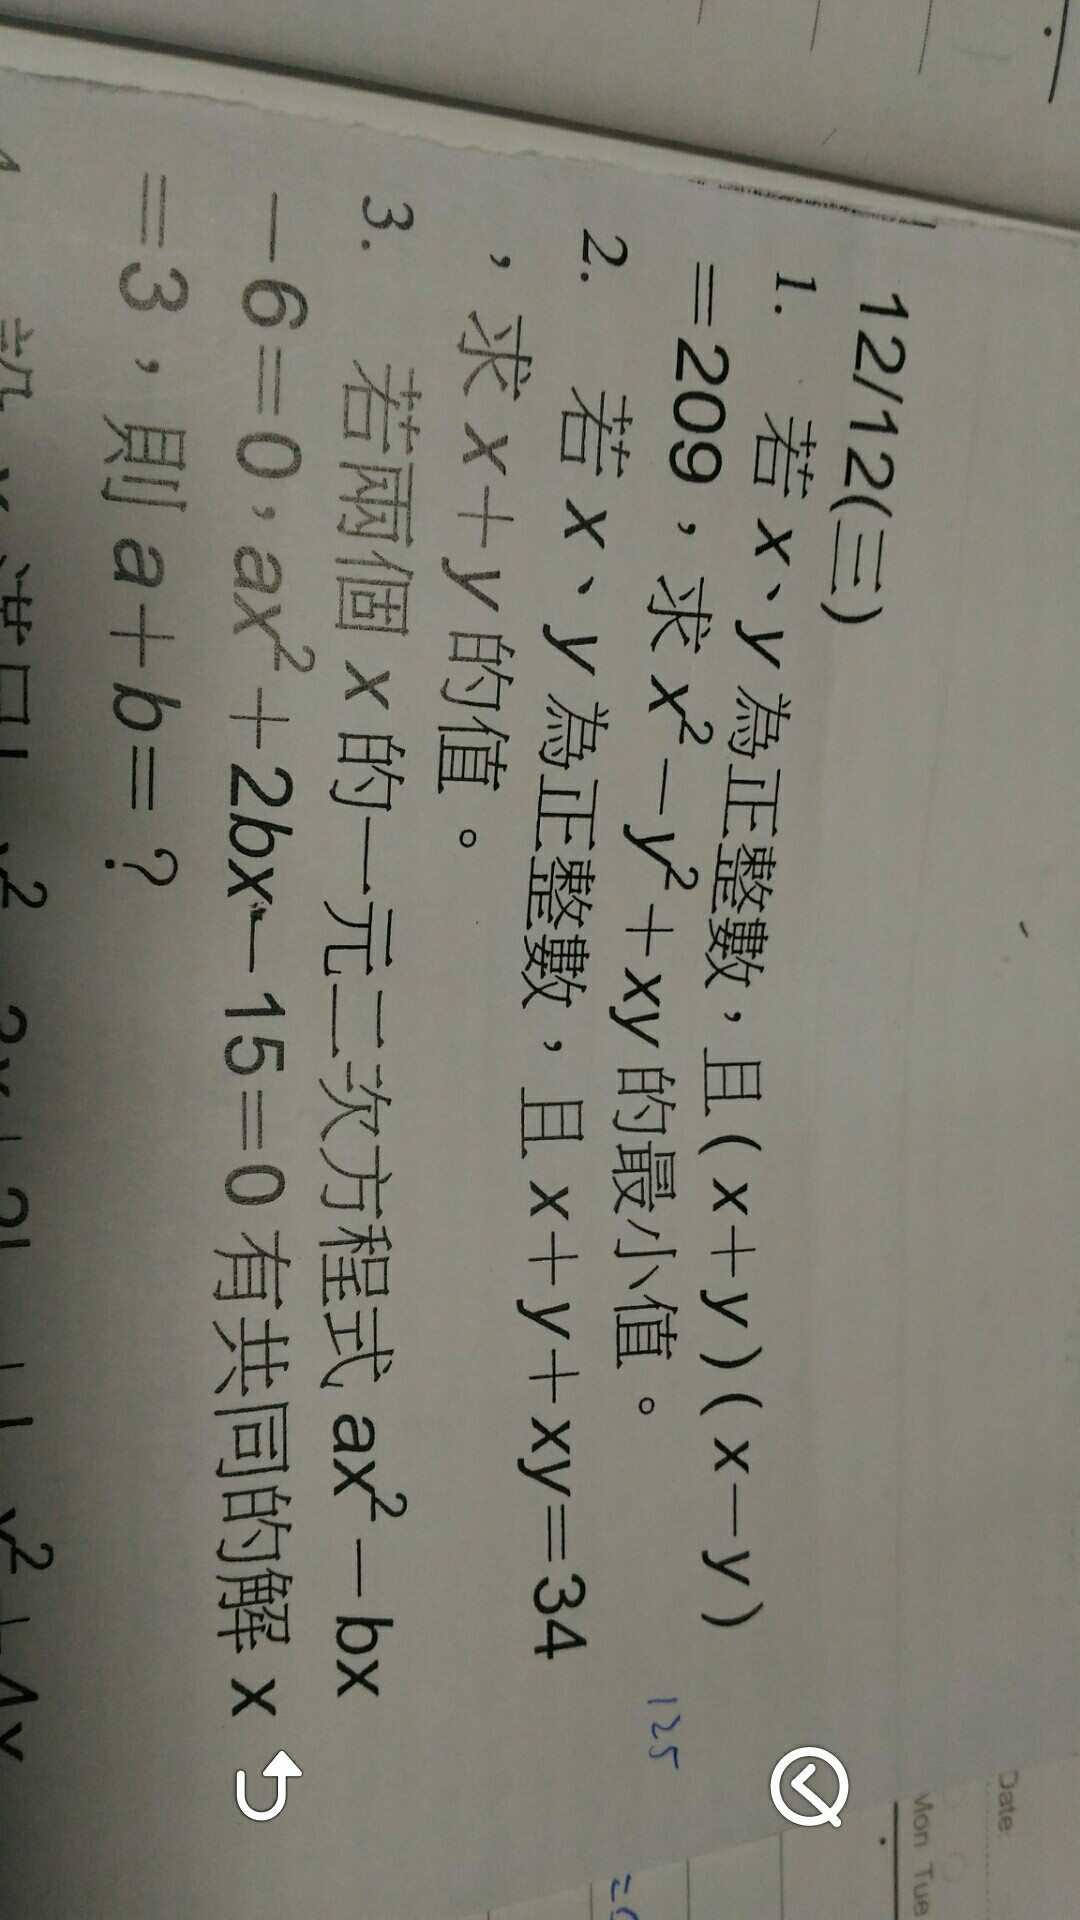 12/12(三)
1. 若 x、y 為正整數，且(x+y)(x-y)
=209，求 x²-y²+xy 的最小值。
2. 若 x、y 為正整數，且 x+y+xy=34
，求 x+y 的值。
3. 若兩個 x 的一元二次方程式 ax²-bx
-6=0，ax²+2bx-15=0 有共同的解 x
=3，則 a+b=？
125
Date:
Mon Tue